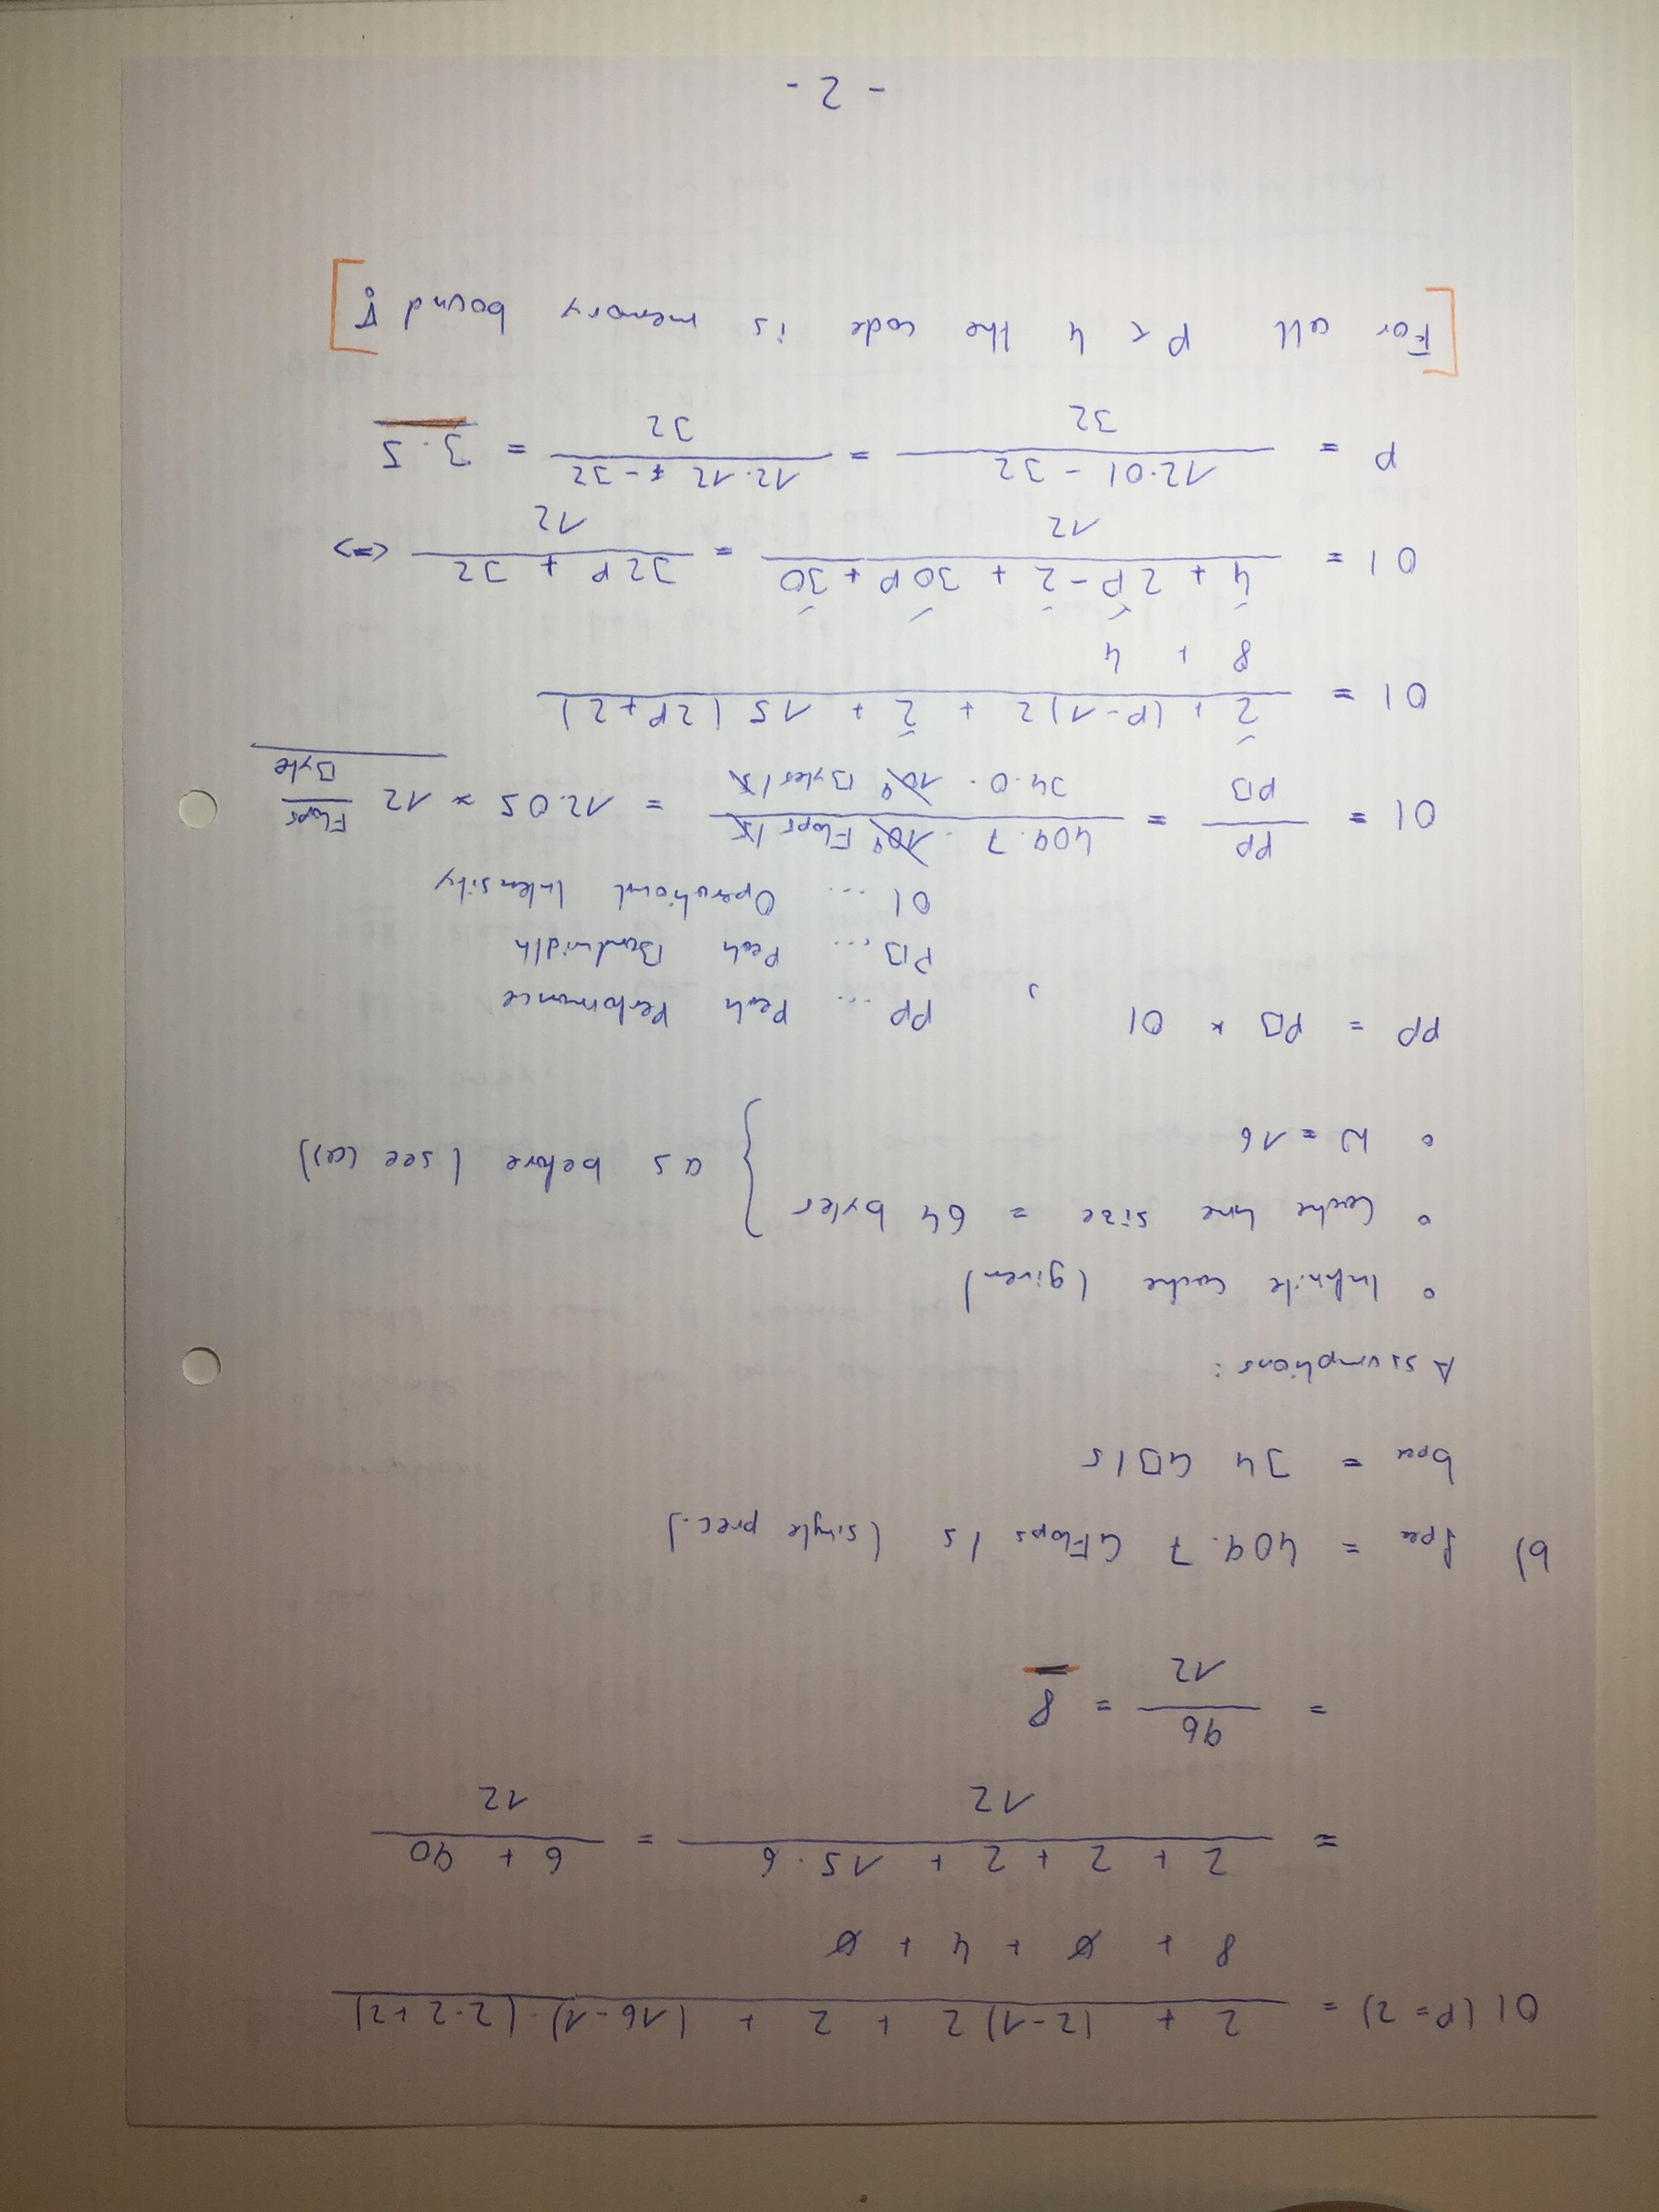 OI (P = 2) = 2 + (2-1) 2 + 2 + (16-1) · (2·2+2)
8 + ø + 4 + ø
= 2 + 2 + 2 + 15 · 6 = 6 + 90
12 12
= 96 = 8
12
b) fpeak = 409.7 GFlops / s (single prec.)
bpeak = 34 GB/s
Assumptions:
° Infinite cache (given)
° Cache line size = 64 bytes
as before (see (a))
° N = 16
PP = PB * OI , PP ... Peak Performance
PB ... Peak Bandwidth
OI ... Operational Intensity
OI = PP = 409.7 · 10⁹ Flops/s = 12.05 ≈ 12 Flops
PB 34.0 · 10⁹ Bytes/s Byte
OI = 2 + (P-1) 2 + 2 + 15 (2P+2)
8 + 4
OI = 4 + 2P - 2 + 30P + 30 = 32P + 32 <=>
12 12
P = 12·OI - 32 = 12·12 - 32 = 3.5
32 32
[For all P < 4 the code is memory bound!]
- 2 -